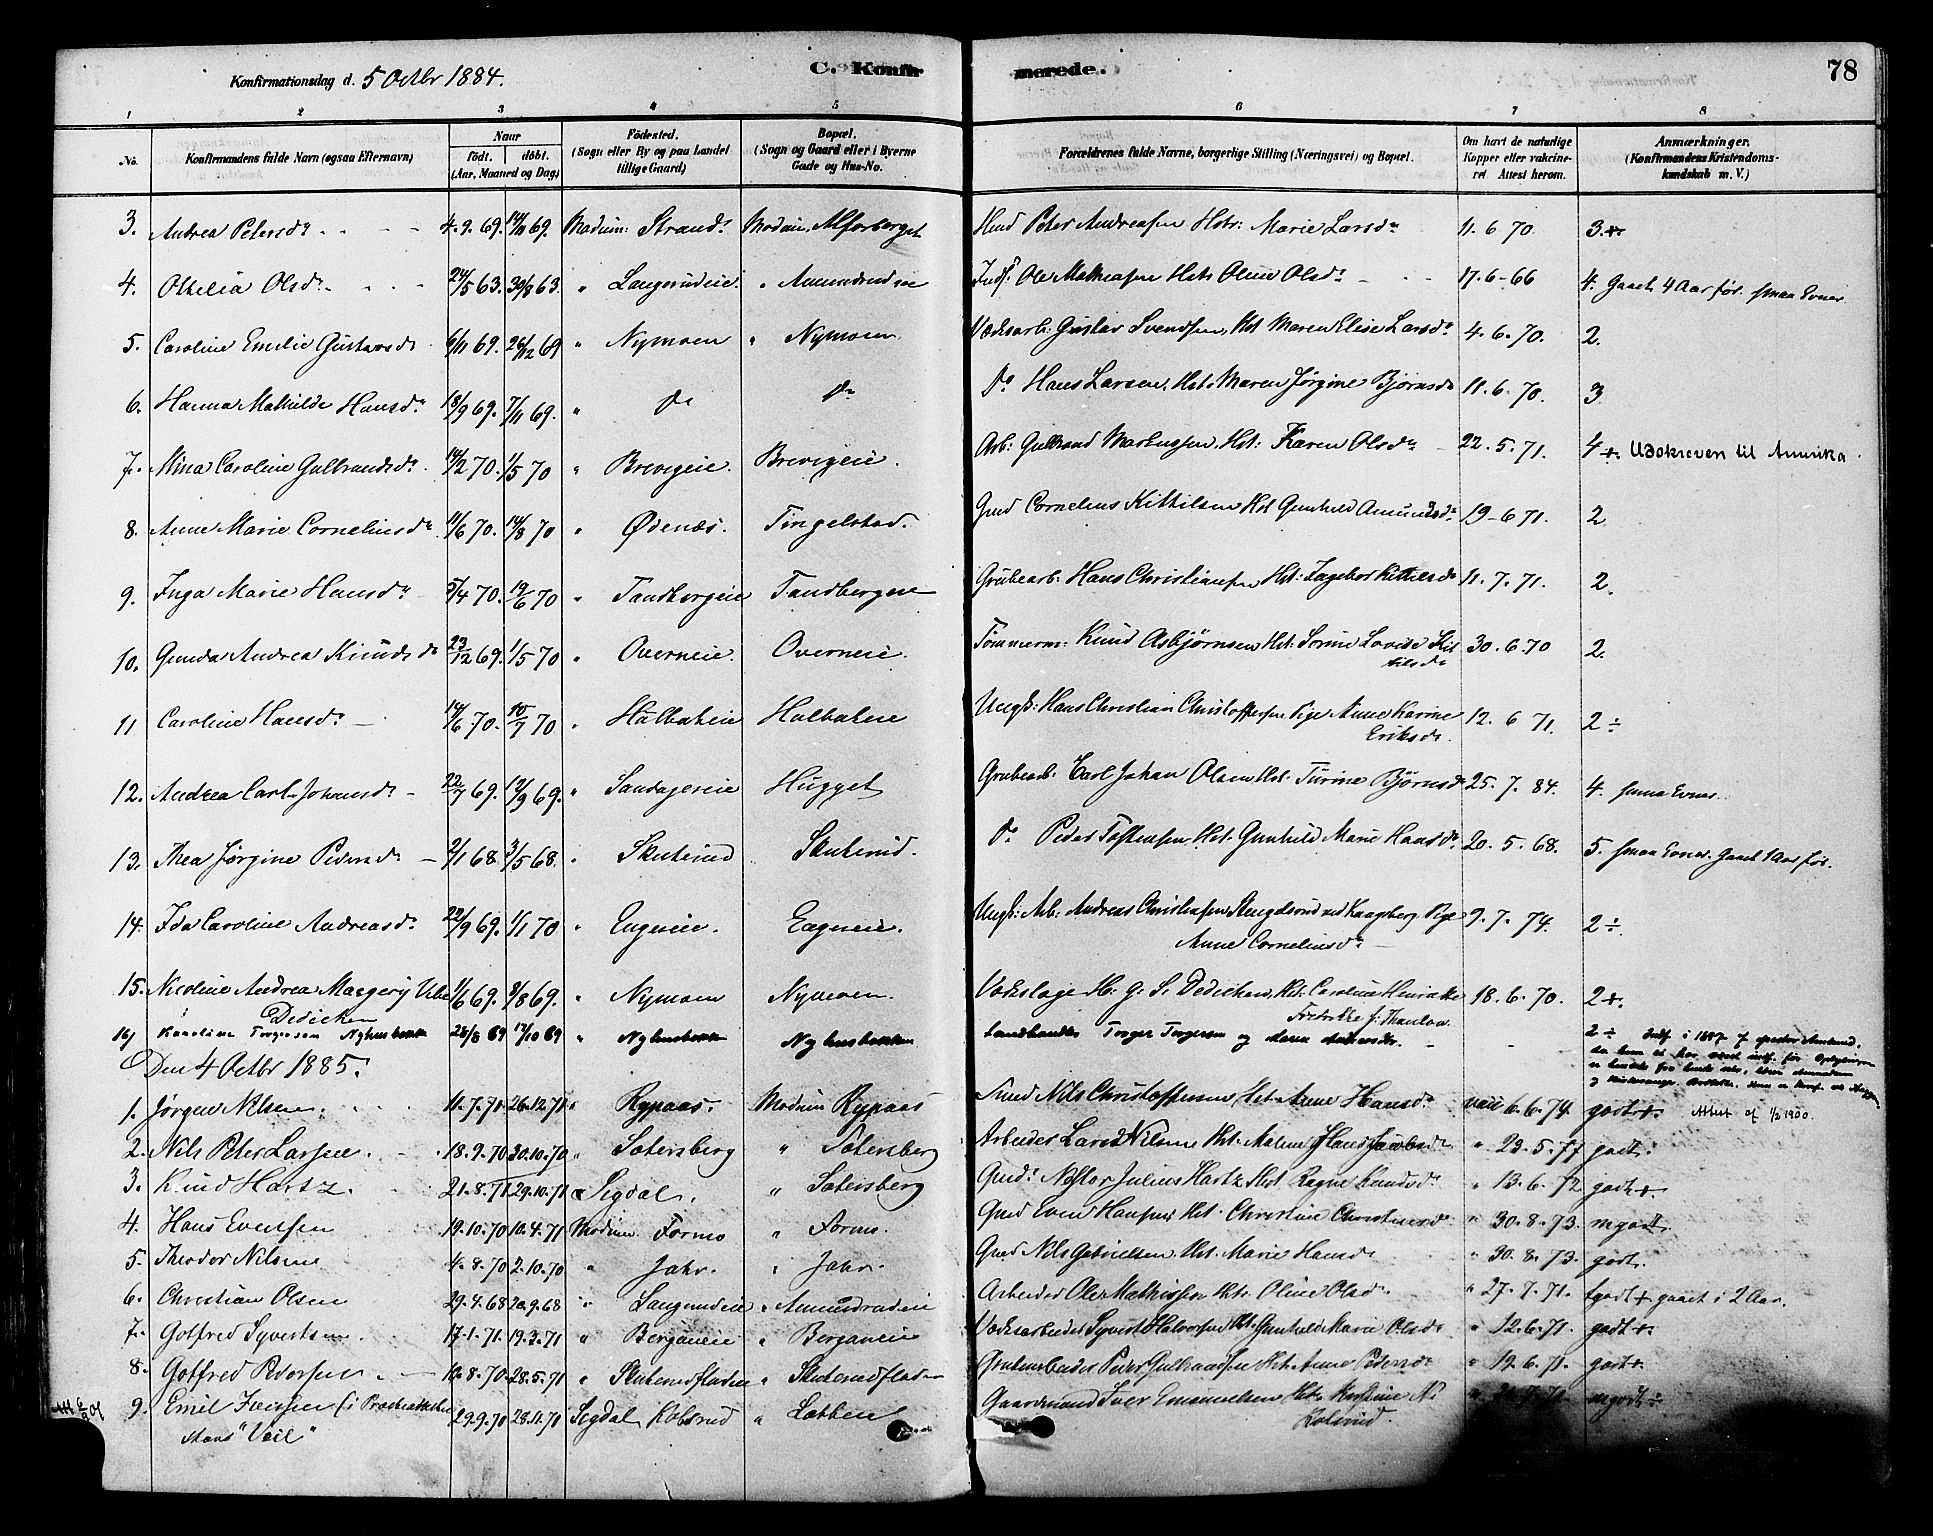 Konfirmationsdag d. 5 Octbr 1884.
C. Konfirmerede.
78
1 2 3 4 5 6 7 8
No.
Konfirmandens fulde Navn (ogsaa Efternavn)
Naar
födt. döbt.
(Aar, Maaned og Dag)
Födested.
(Sogn eller By og paa Landet
tillige Gaard)
Bopæl.
(Sogn og Gaard eller i Byerne
Gade og Hus-No.
Forældrenes fulde Navne, borgerlige Stilling (Næringsvei) og Bopæl.
Om havt de naturlige
Kopper eller vakcine-
ret Attest herom.
Anmærkninger.
(Konfirmandens Kristendoms-
kundskab m. V.)
3. Andrea Petersdr 4.9.69. 14/11 69. Modum: Strand. Modum, Peter Andreasen Hstr: Marie Larsdr 11.6 70. 3+
4. Othelia Olsdr 24/5 63. 30/8 63. " Langerudeie " Amundrudeie Indr Ole Mathiasen Hstr Oline Olsdr 17.6-66 4. Gaaet 4 Aar för. smaa Evner.
5. Caroline Emilie Gustavsdr 6/11 69. 26/12 69 " Nymoen " Nymoen Værksarb. Gustav Svendsen, Hst Maren Elise Larsdr 4.6.70. 2.
6. Hanna Mathilde Hansdr 18/9 69. 7/11 69. " do do do Hans Larsen, Hst. Maren Jørgine Bjørnsdr 11.6.70. 3
7. Nina Caroline Gulbrandsdr 14/2 70. 1/5 70 " Brevigeie Brevigeie. Arb: Gulbrand Markussen, Hst: Karen Olsdr 22.5.71. 4+. Udskreven til Amerika
8. Anne Marie Corneliusdr 11/6 70. 14/8 70 " Ødenæs. Tingelstad. Gmd Cornelius Kittilsen Hst Gunhild Amundsdr 19-6 71. 2
9. Inga Marie Hansdr 5/4 70. 19/6 70 " Tandbergeie Tandbergeie Grubearb: Hans Christiansen Hst: Ingebor Kittilsdr 11.7.71. 2.
10. Gunda Andrea Knudsdr 23/12 69. 1/5 70 " Overneie. Overneie. Tømmerm: Knud Asbjørnsen Hst: Sorine Lovise Kit
tilsdr 30.6.70 2.
11 Caroline Hansdr 14/6 70. 10/7 70 " Halbakeie Halbakeie Ungk: Hans Christian Christoffersen Pige Anne Karine
Eriksdr. 12.6 71. 2÷
12. Andrea Carl Johansdr 22/7 69. 12/9 69. " Sandagereie Hugget Grubearb. Carl Johan Olsen Hst. Turine Bjørnsdr 25.7.84. 4. smaa Evner.
13. Thea Jørgine Pedersdr 2/1 68. 3/5 68. " Skuterud Skuterud. do Peder Tostensen, Hst. Gunhild Marie Hansdr. 20.5.68. 5. smaa Evner. Gaaet 1 Aar før.
14. Ida Caroline Andreasdr. 22/9 69. 1/1 70 " Engeneie. Engneie. Ungk: Arb: Andreas Christiansen Stengelsrud ved Kongsberg. Pige
Anne Corneliusdr 9.7.74. 2÷.
15. Nicoline Andrea Margery Vibe
Dedicken 1/6 69. 8/8 69. " Nymoen Nymoen. Værkslæge H. G. S. Dedichen, Hst. Caroline Henrikke
Fredrikke f: Thaulow 18.6.70. 2+.
16) Karoline Torgersen Nyhusbakk 28/8 69 17/10 69 " Nyhusbakk Nyhusbakken Landhandler Torger Torgersen og Maren Andersdr. - 2÷
Den 4 Octbr 1885.
1. Jørgen Nilsen. 11.7.71. 26.12.71 " Rypaas. Modum Rypaas Smed Nils Christoffersen, Hst. Anne Hansdr. vacc 6.6.74. godt+. Attest af 1/2 1900.
2. Nils Peter Larsen. 18.9.70 30.10.70 " Sotersberg " Sotersberg Arbeider Lars Nilsen Hst. Malene Jacobsdr " 23.5.77 godt.
3. Knud Hartz. 21.8.71 29.10.71 Sigdal. " Sotersberg Gmd: Nestor Julius Hartz Hst Ragne Knudsdr " 13.6.72 godt+.
4. Hans Evensen 19.10.70 10.4.71 Modum Formo " Formo. Gmd Even Hansen Hst. Christine Christensdr " 30.8.73. mgodt
5. Theodor Nilsen 4.8.70 2.10.70 " Jahr. " Jahr. Gmd Nils Gabrielsen. Hst. Marie Hansdr " 30.8.73. godt.
6. Christian Olsen 29.4.68 20.9.68 " Langerudeie " Amundrudeie Arbeider Ole Mathissen Hst. Oline Olsdr. " 27.7.71. tgodt+ gaaet i 2 Aar.
7. Gotfred Syvertsen 17.1.71. 19.3.71 " Berganeie " Berganeie Værksarbeider Syvert Halvorsen Hst. Gunhild Marie Olsdr " 12.6.71. godt+.
8. Gotfred Pedersen 10.8.70 28.5.71 " Skuterudfladen " Skuterudfladen Grubearbeider Peder Gulbrandsen Hst. Anne Pedersdr " 12.6.71. godt+.
9. Emil Iversen 29.9.70 28.11.70 Sigdal Kolsrud " Løkken Gaardmand Iver Emanuelsen Hst. Kirstine N.
Kolsrud. mgodt÷
"Veil"